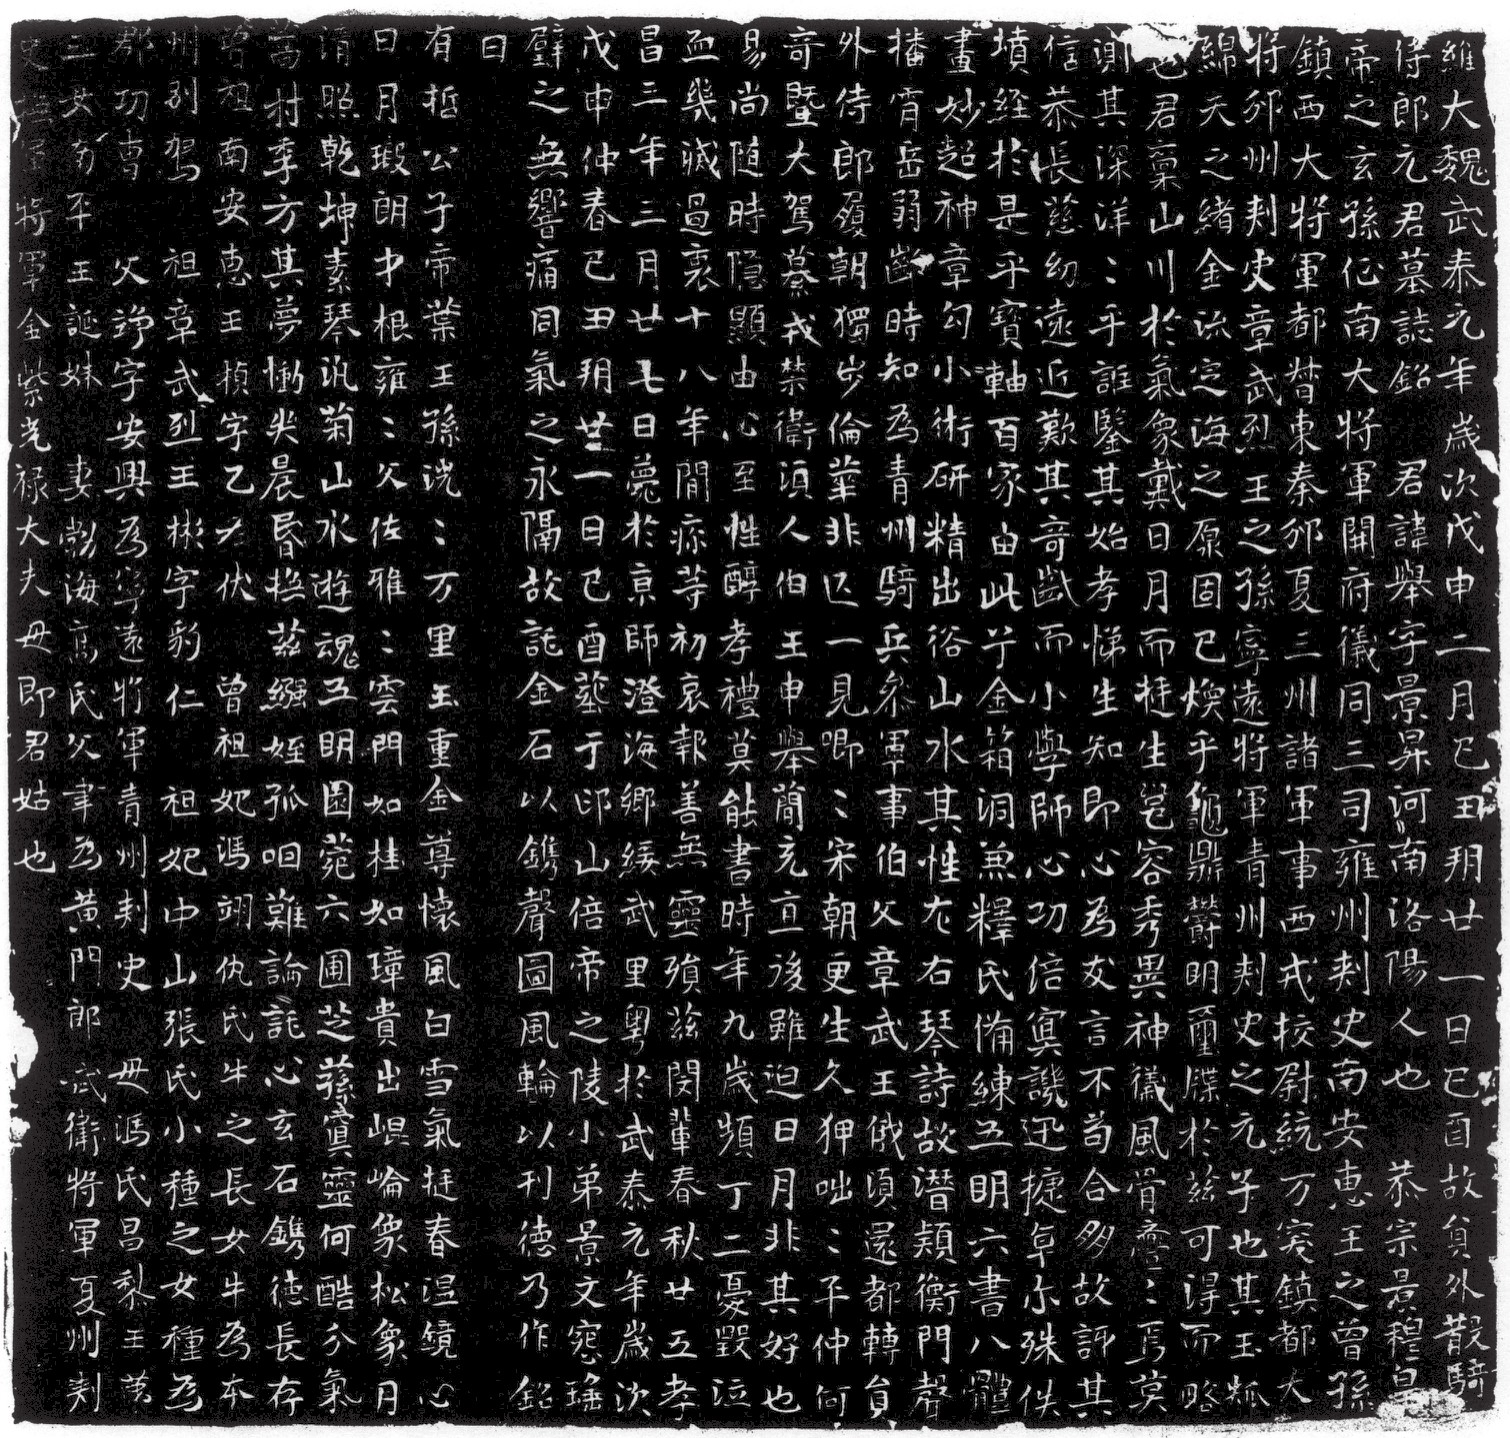 維大魏武泰元年歲次戊申二月己丑朔廿一日己酉故員外散騎
侍郎元君墓誌銘 君諱舉字景昇河南洛陽人也 恭宗景穆皇
帝之玄孫征南大將軍開府儀同三司雍州刺史南安惠王之曾孫
鎮西大將軍都督東秦邠夏三州諸軍事西戎校尉統万突鎮都大
將邠州刺史章武烈王之孫寧遠將軍青州刺史之元子也其玉瓞
綿天之緒金流定海之原固已煥乎龜鼎鬱明璽牒於茲可得而略
也君稟山川於氣象戴日月而挺生岂容秀異神儀風骨亹〻焉莫
測其深洋〻乎誰鑒其始孝悌生知即心為友言不苟合多故訝其
信恭長慈幼遠近歎其奇齔而小學師心功倍寘譏迅捷草尒殊佚
墳經於是乎寶軸百家由此兮金箱洞兼釋氏備練五明六書八體
畫妙超神章勾小術研精出俗山水其性左右琴詩故潛穎衡門聲
播霄岳弱齔時知為青州騎兵參軍事伯父章武王俄須還都轉員
外侍郎履朝獨步倫華非匹一見唧〻宋朝更生久狎咄〻平仲何
奇暨大駕纂戎禁衛須人伯王申舉簡充直後雖迫日月非其好也
易尚隨時隐顯由心至性醇孝禮莫能書時年九歲頻丁二憂毀泣
血幾滅過衰十八年間疹等初哀報善無靈殞茲閔輩春秋廿五孝
昌三年三月廿七日薨於京師澄海鄉綏武里粵於武泰元年歲次
戊申仲春己丑朔廿一日己酉葬于邙山倍帝之陵小弟景文寃瑤
璧之無響痛同氣之永隔故託金石以鐫聲圖風輪以刊德乃作銘
曰
有抵公子帝葉王孫洸〻万里玉重金尊懷風白雪氣挺春溫鏡心
日月瑕朗才根雍〻父佐雅〻雲門如桂如璋貴出崐崘象松象月
清照乾坤素琴汎菊山水遊魂五明園菀六圃芝蓀寘靈何酷分氣
當村季方其夢慟失晨昏撫茲繈姪孤咽難論託心玄石鐫德長存
曾祖南安惠王楨字乙若伏 曾祖妃馮翊仇氏牛之長女牛為本
州別駕 祖章武烈王彬字豹仁 祖妃中山張氏小種之女種為
郡功曹 父竫字安興為寧遠將軍青州刺史 毋馮氏昌黎王萬
三女南平王誕妹 妻勃海高氏父聿為黃門郎武衛將軍夏州刺
史 將軍金紫光祿大夫毋即君姑也